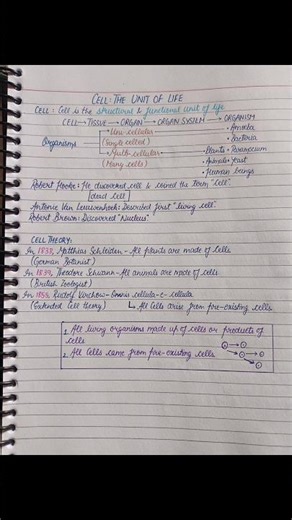 CELL: THE UNIT OF LIFE
CELL: Cell is the structural & functional unit of life
CELL → TISSUE → ORGAN → ORGAN SYSTEM → ORGANISM
Organisms
• Uni-cellular
(Single celled)
• Multi-cellular
(Many cells)
• Amoeba
• Bacteria
• Paramecium
• Yeast
• Plants
• Animals
• Human beings
Robert Hooke: He discovered cell & coined the term "cell"
[dead cell]
Antonie Van Leeuwenhoek: Described first "living cell"
Robert Brown: Discovered "Nucleus"
CELL THEORY:
In 1838, Matthias Schleiden - All plants are made of cells
(German Botanist)
In 1839, Theodore Schwann - All animals are made of cells
(British Zoologist)
In 1855, Rudolf Virchow - Omnis cellula-e-cellula
(Extended Cell theory) ↳ All Cells arise from pre-existing cells
1. All living organisms made up of cells or products of
cells
2. All Cells came from pre-existing cells